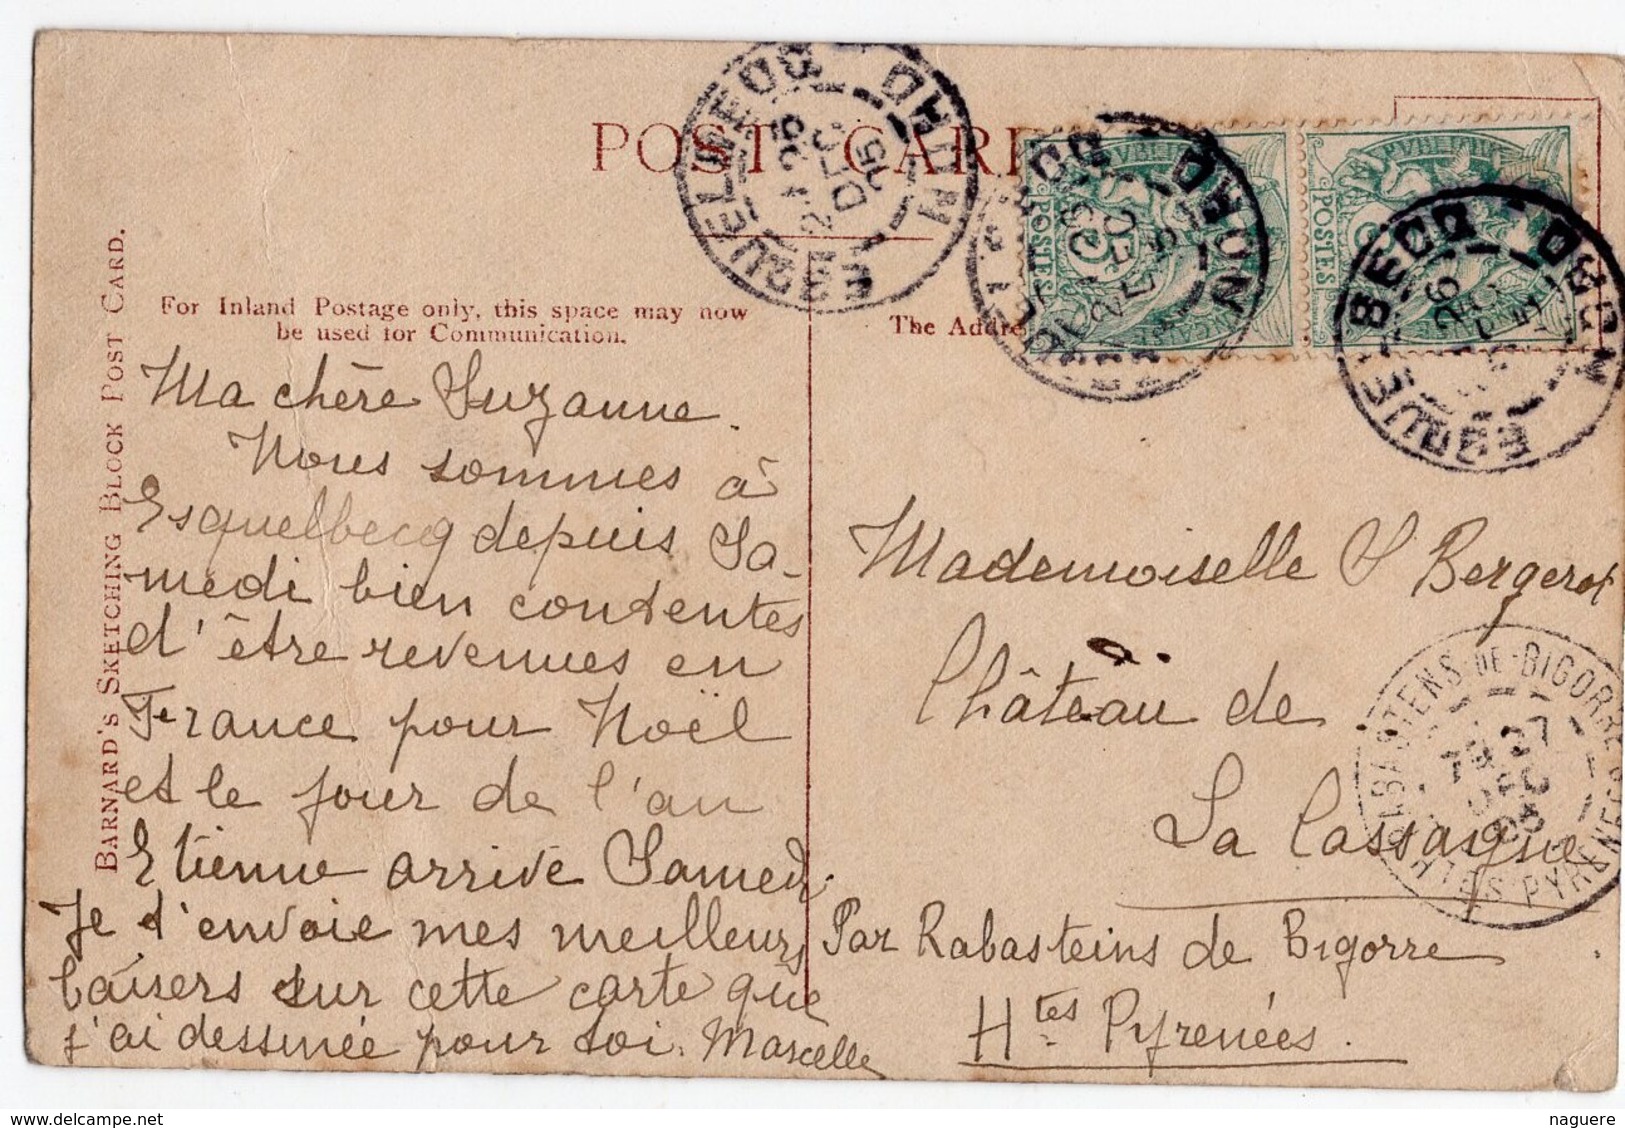 POST CARD
BARNARD'S SKETCHING BLOCK POST CARD.
For Inland Postage only, this space may now
be used for Communication.
The Addre
ESQUELBECQ NORD
DEC
ESQUELBECQ NORD
26
DEC
ESQUELBECQ NORD
26
POSTES
POSTES
Ma chère Suzanne.
Nous sommes à
Esquelbecq depuis Sa-
medi bien contentes
d'être revenues en
France pour Noël
et le jour de l'an
Etienne arrive Samedi.
Je t'envoie mes meilleurs
baisers sur cette carte que
j'ai dessinée pour toi. Marcelle
Mademoiselle S Bergerot
Château de
La Cassaigne
Par Rabasteins de Bigorre
Htes Pyrenées.
RABASTENS-DE-BIGORRE
27
DEC
05
HTES PYRENEES
naguere